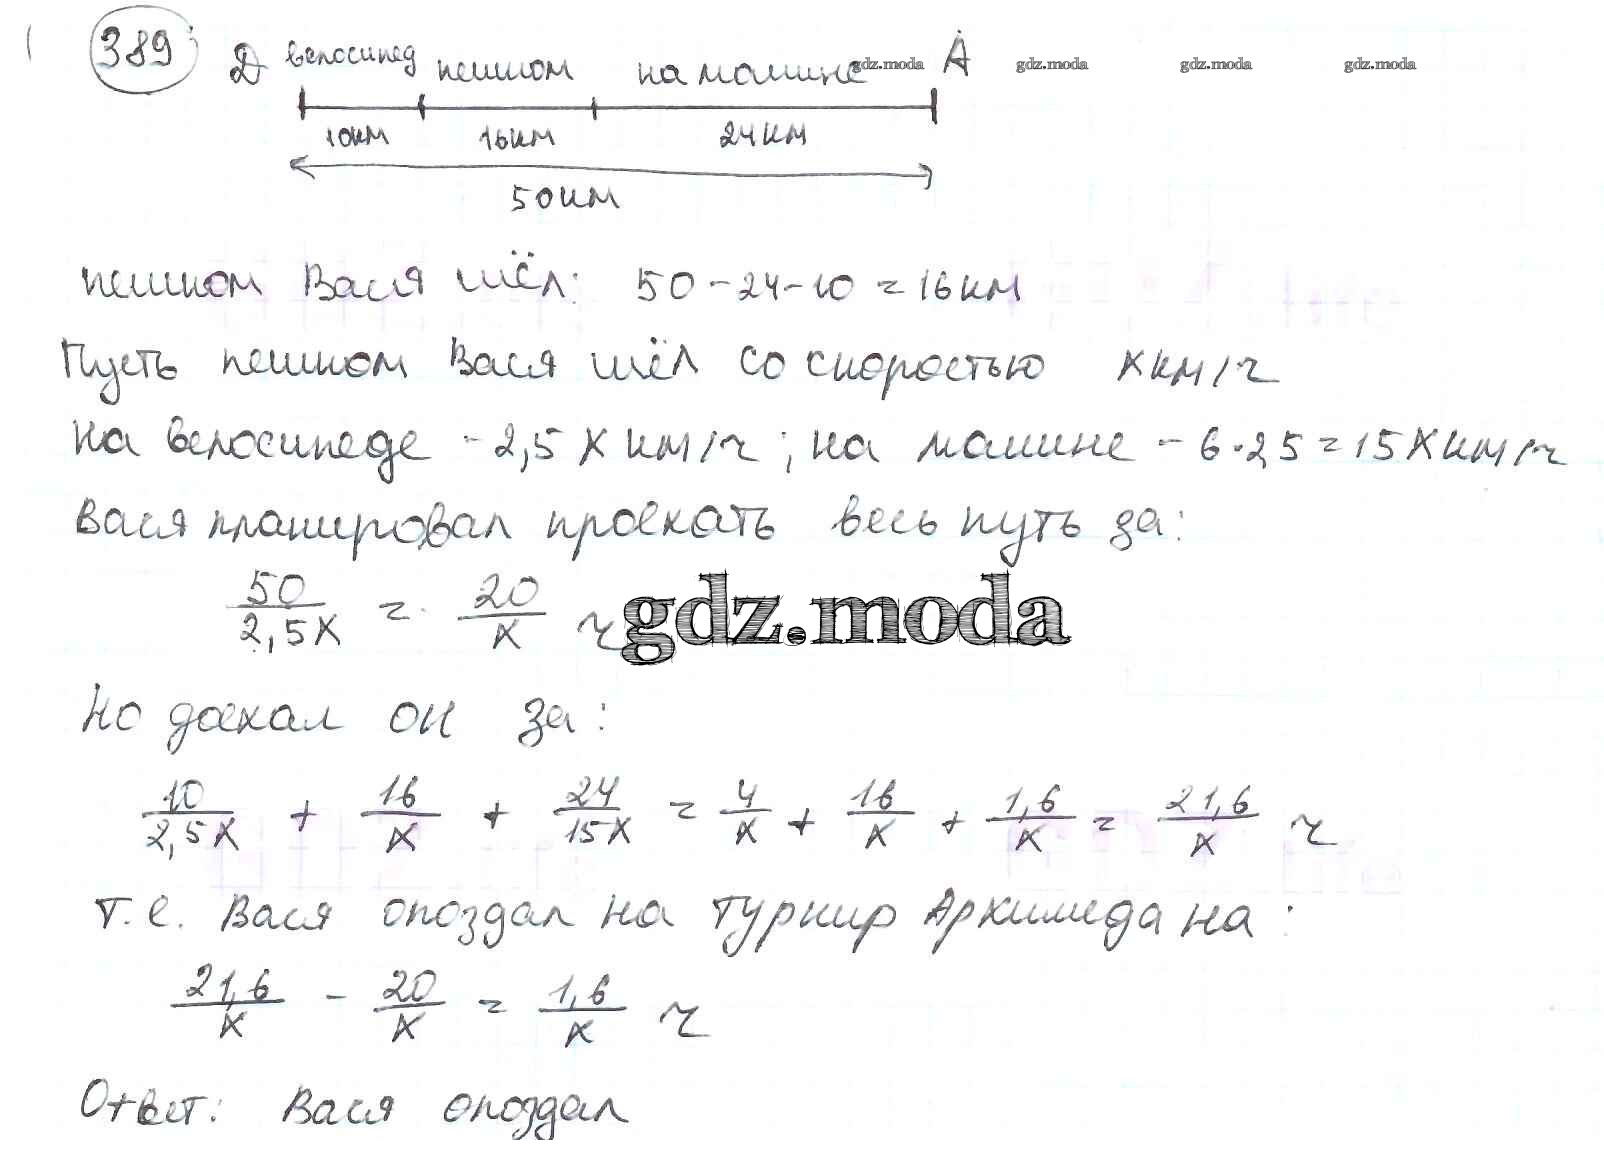 389 Д велосипед пешком на машине А
gdz.moda gdz.moda gdz.moda gdz.moda
10км 16км 24км
50км
пешком Вася шёл: 50-24-10=16км
Пусть пешком Вася шёл со скоростью x км/ч
На велосипеде -2,5x км/ч; на машине - 6·2,5=15x км/ч
Вася планировал проехать весь путь за:
50/2,5x = 20/x ч
gdz.moda
Но доехал он за:
10/2,5x + 16/x + 24/15x = 4/x + 16/x + 1,6/x = 21,6/x ч
т.е. Вася опоздал на турнир Архимеда на:
21,6/x - 20/x = 1,6/x ч
Ответ: Вася опоздал